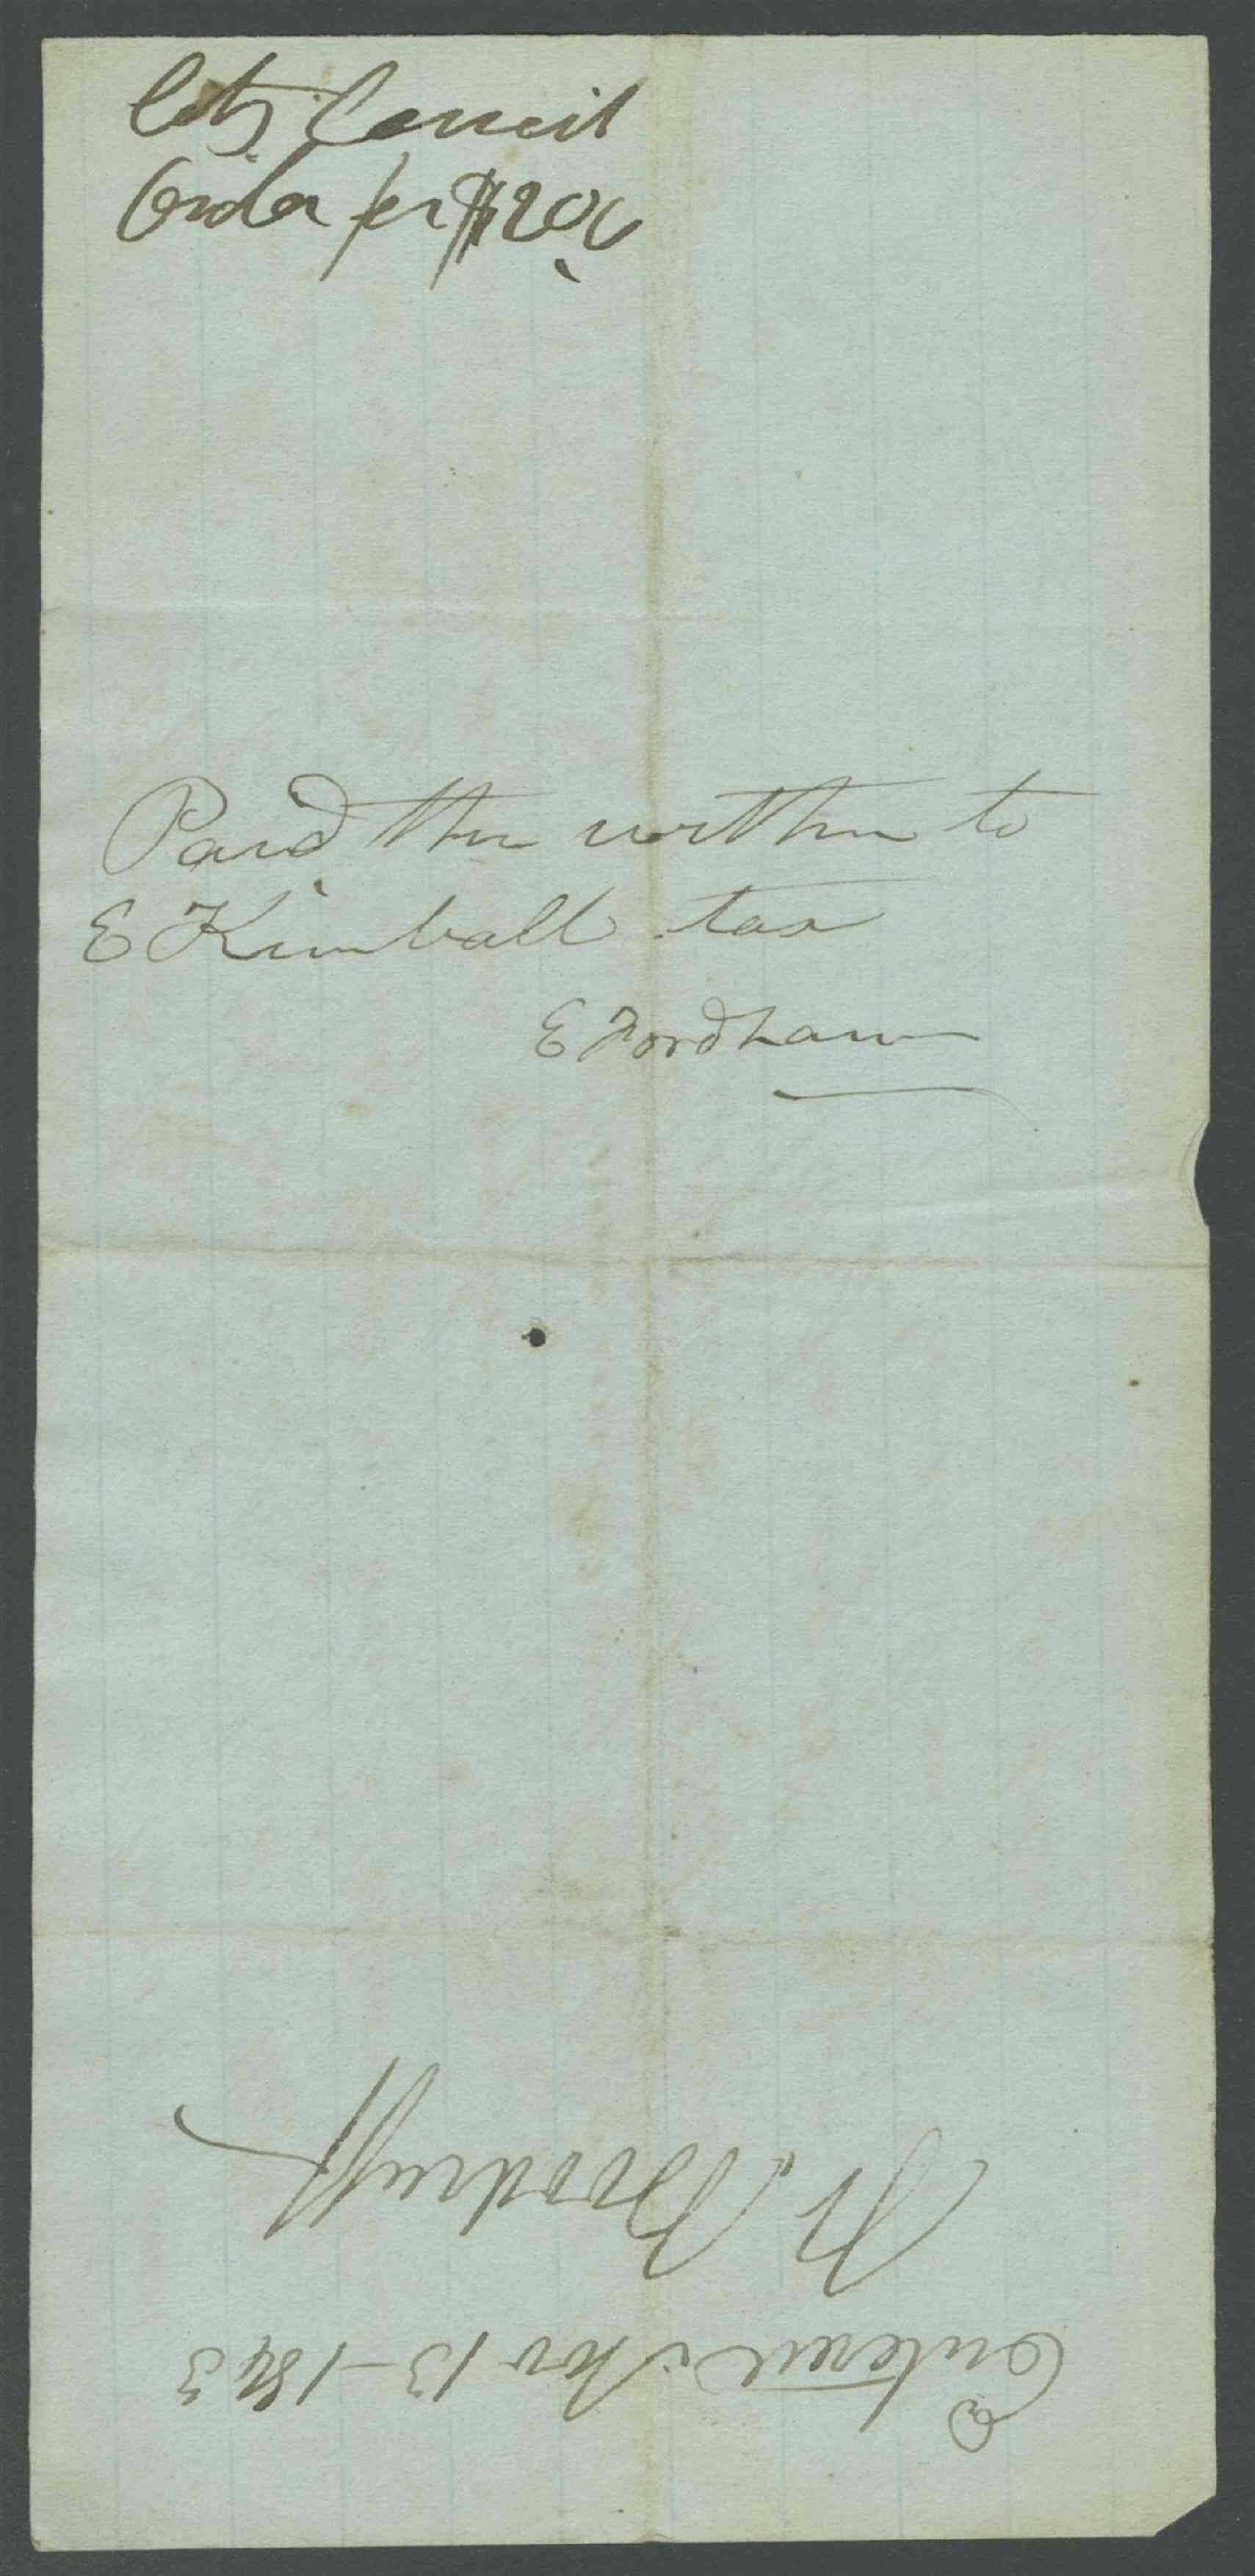 City Council
Order for $20
Paid the within to
E Kimball tax
E Fordham
W. Woodruff
Entered Nov 13-1843